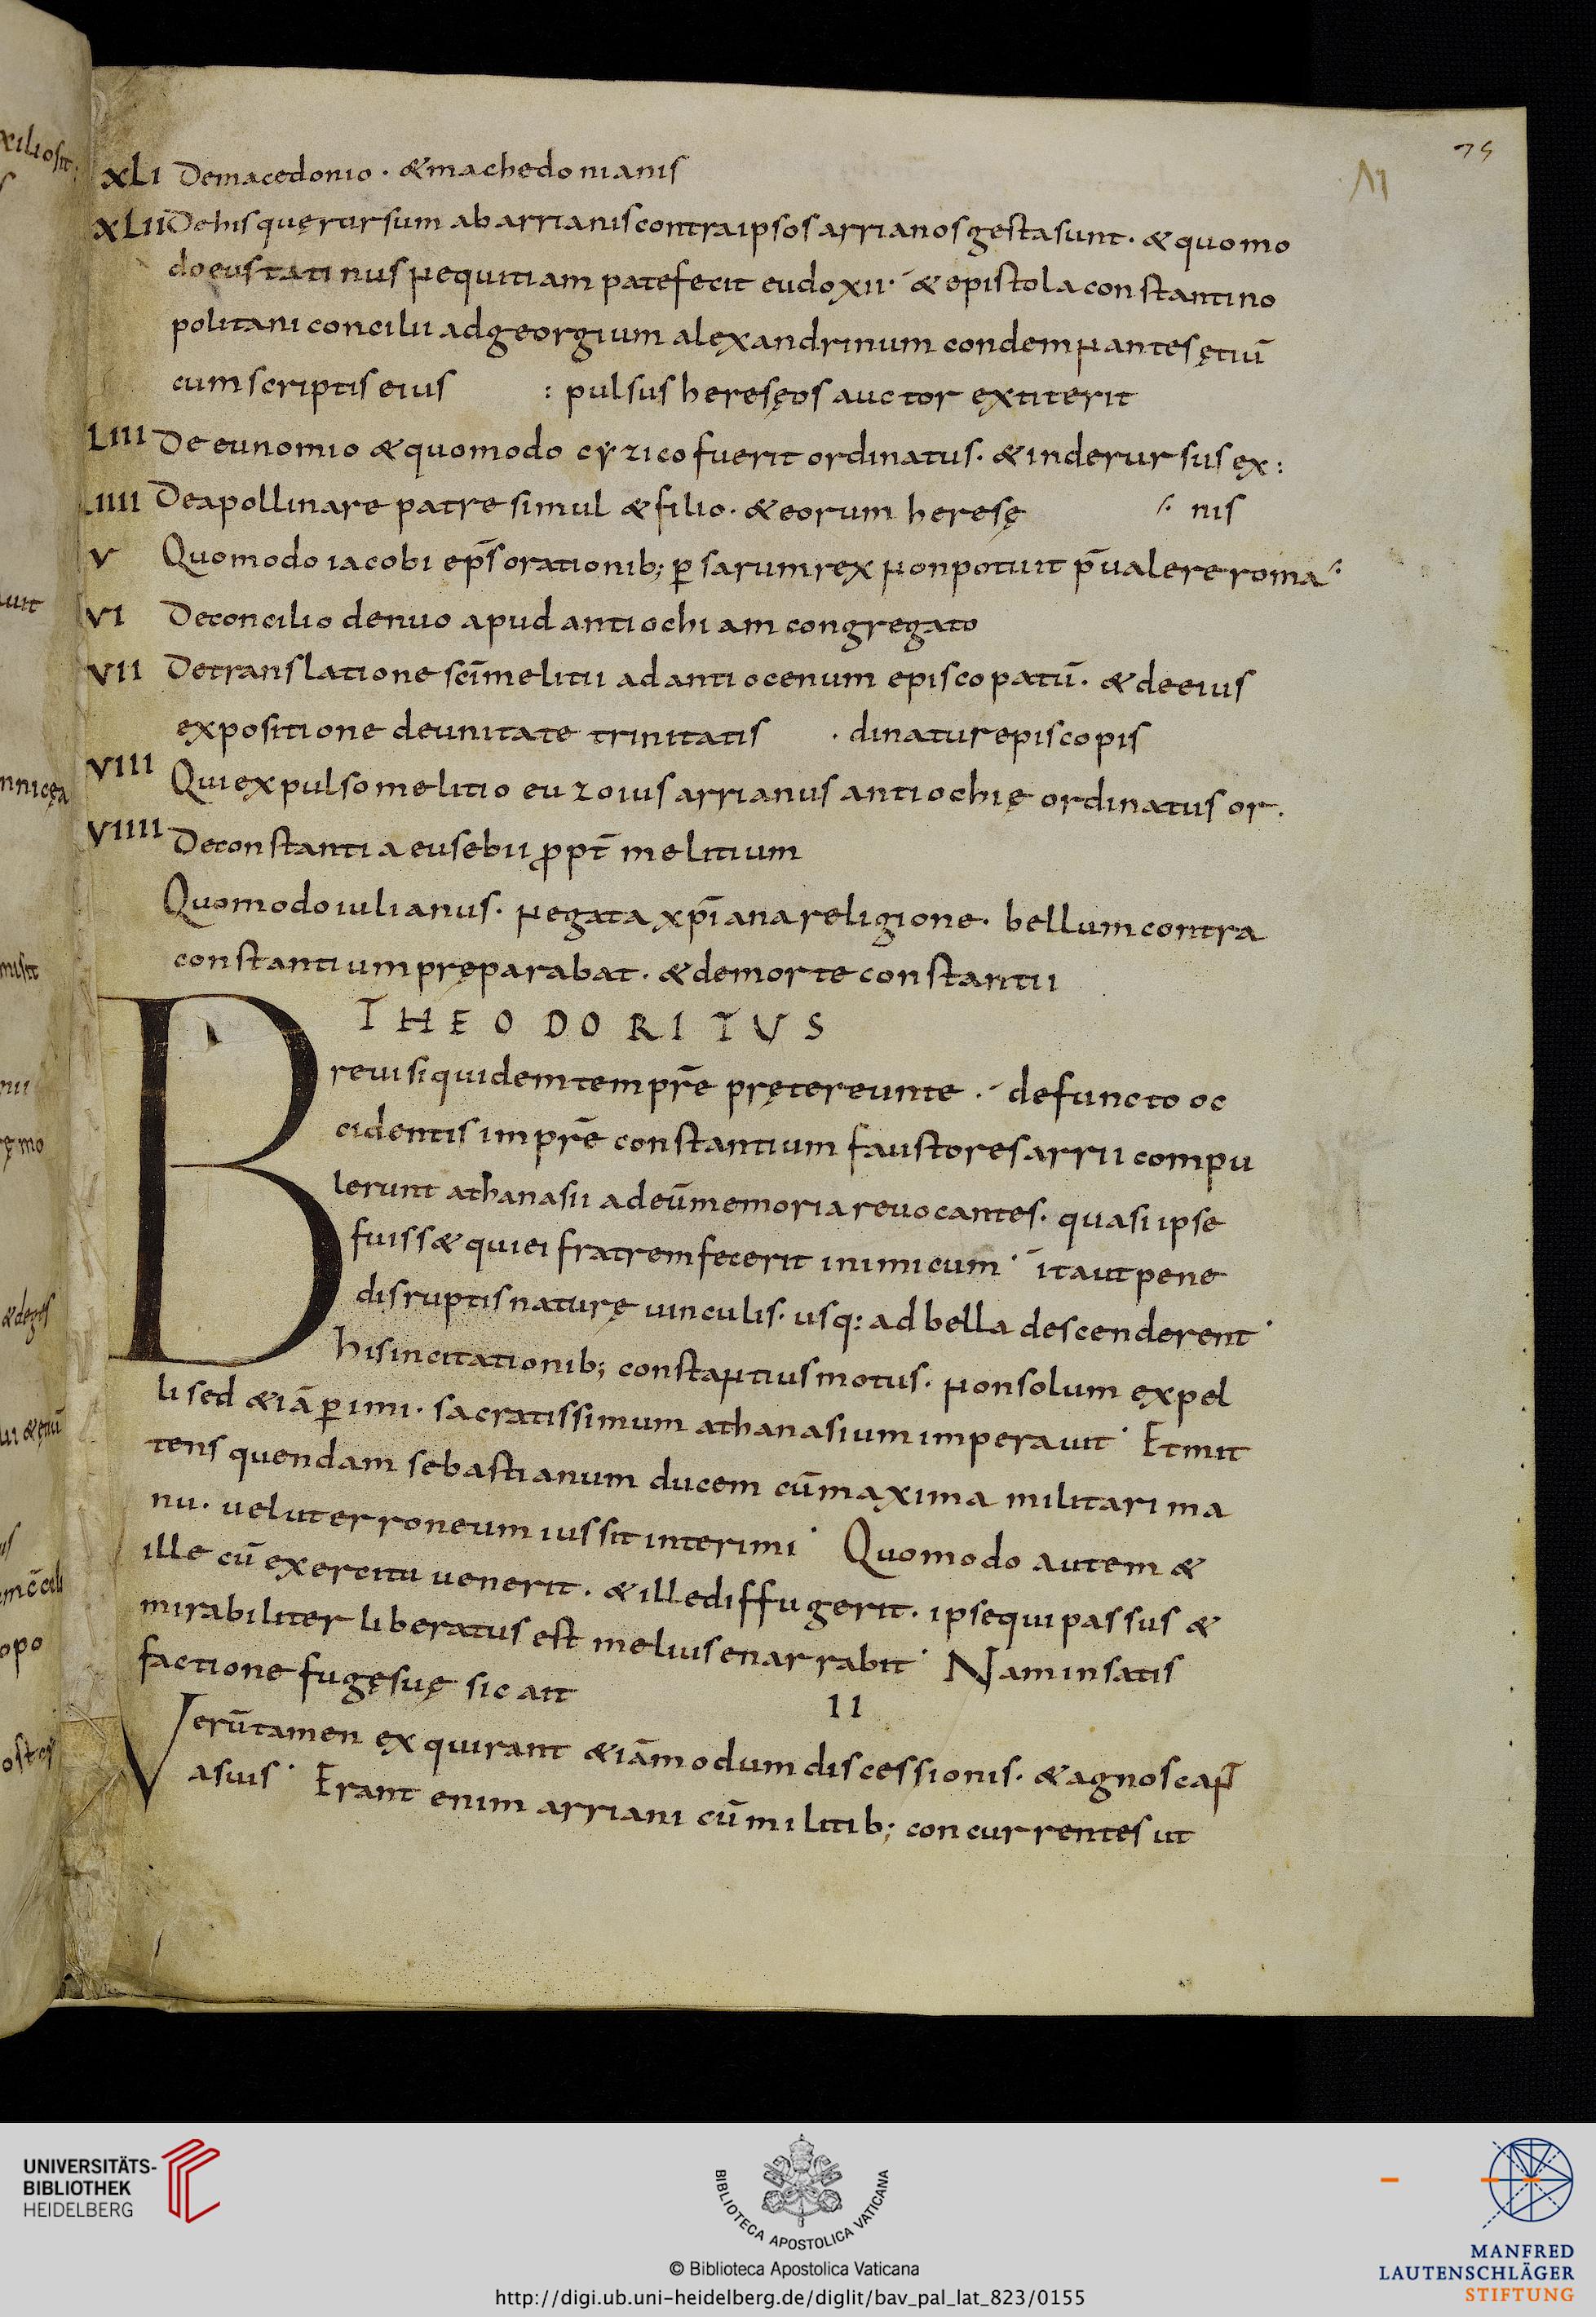 75
XLI Demacedonio · &machedonianis
XLII Dehisquęrursum abarrianiscontraipsosarrianosgestasunt · &quomo
doeustatinusnequitiam patefecit eudoxii · &epistolaconstantino
politaniconcilii adgeorgium alexandrinum condemnantesętiū
cumscriptiseius : pulsus heresęos auctor extiterit
LIII De eunomio &quomodo cyzicofuerit ordinatus · &inderursus ex :
LIIII Deapollinare patre simul &filio · &eorum heresę ⁖ nis
V Quomodo iacobi ep̄s orationib; ꝑsarumrex nonpotuit p̄ualere roma ⁖
VI Deconcilio denuo apud antiochiam congregato
VII Detranslatione sc̄imelitii ad antiocenum episcopatū · &deeius
expositione deunitate trinitatis · dinaturepiscopis
VIII Quiexpulsomelitio euzoius arrianus antiochię ordinatus or ·
VIIII Deconstantia eusebii ꝓpt̄ melitium
Quomodoiulianus · negata xp̄ianareligione · bellumcontra
constantiumpręparabat · &demorte constantii
THEODORITUS
Breuisiquidemtempr̄e pręterеunte · defuncto oc
cidentis impr̄e constantium faustoresarrii compu
lerunt athanasii adeūmemoriareuocantes · quasi ipse
fuiss&quiei fratremfecerit inimicum · itautpene
disruptisnaturę uinculis · usq: ad bella descenderent ·
hisincitationib; constantiusmotus · nonsolum expel
li sed &iāꝑimi · sacratissimum athanasiumimperauit · Etmit
tens quendam sebastianum ducem cūmaxima militari ma
nu · uelut erroneum iussitinterimi · Quomodo autem &
ille cū exercitu uenerit · &illediffugerit · ipsequipassus &
mirabiliter liberatus est meliusenarrabit · Naminsatis
factione fugęsuę sic ait
II
Verūtamen exquirant &iāmodum discessionis · &agnoscant
asuis · Erant enim arriani cūmilitib; concurrentes ut
UNIVERSITÄTS-
BIBLIOTHEK
HEIDELBERG
BIBLIOTECA APOSTOLICA VATICANA
© Biblioteca Apostolica Vaticana
http://digi.ub.uni-heidelberg.de/diglit/bav_pal_lat_823/0155
MANFRED
LAUTENSCHLÄGER
STIFTUNG